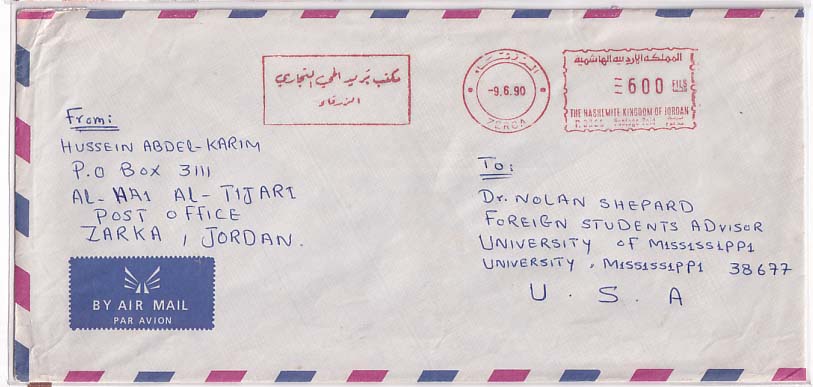 مكتب بريد الحي التجاري
الزرقاء
الزرقاء
-9.6.90
ZERQA
المملكة الاردنية الهاشمية
600 FILS
THE HASHEMITE KINGDOM OF JORDAN
Postage Paid
From:
HUSSEIN ABDEL-KARIM
P.O BOX 3111
AL-HAI AL-TIJARI
POST OFFICE
ZARKA, JORDAN.
BY AIR MAIL
PAR AVION
To:
Dr. NOLAN SHEPARD
FOREIGN STUDENTS ADVISOR
UNIVERSITY OF MISSISSIPPI
UNIVERSITY, MISSISSIPPI 38677
U. S. A